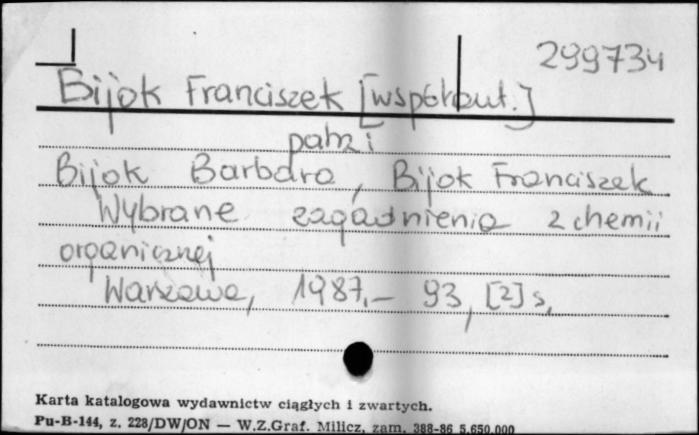 299734
Bijok Franciszek [współaut.]
patrz i
Bijok Barbara, Bijok Franciszek
Wybrane zagadnienia z chemii
organicznej
Warszawa, 1987.- 93, [2] s.
Karta katalogowa wydawnictw ciągłych i zwartych.
Pu-B-144, z. 228/DW/ON — W.Z.Graf. Milicz, zam. 388-86 5.650.000